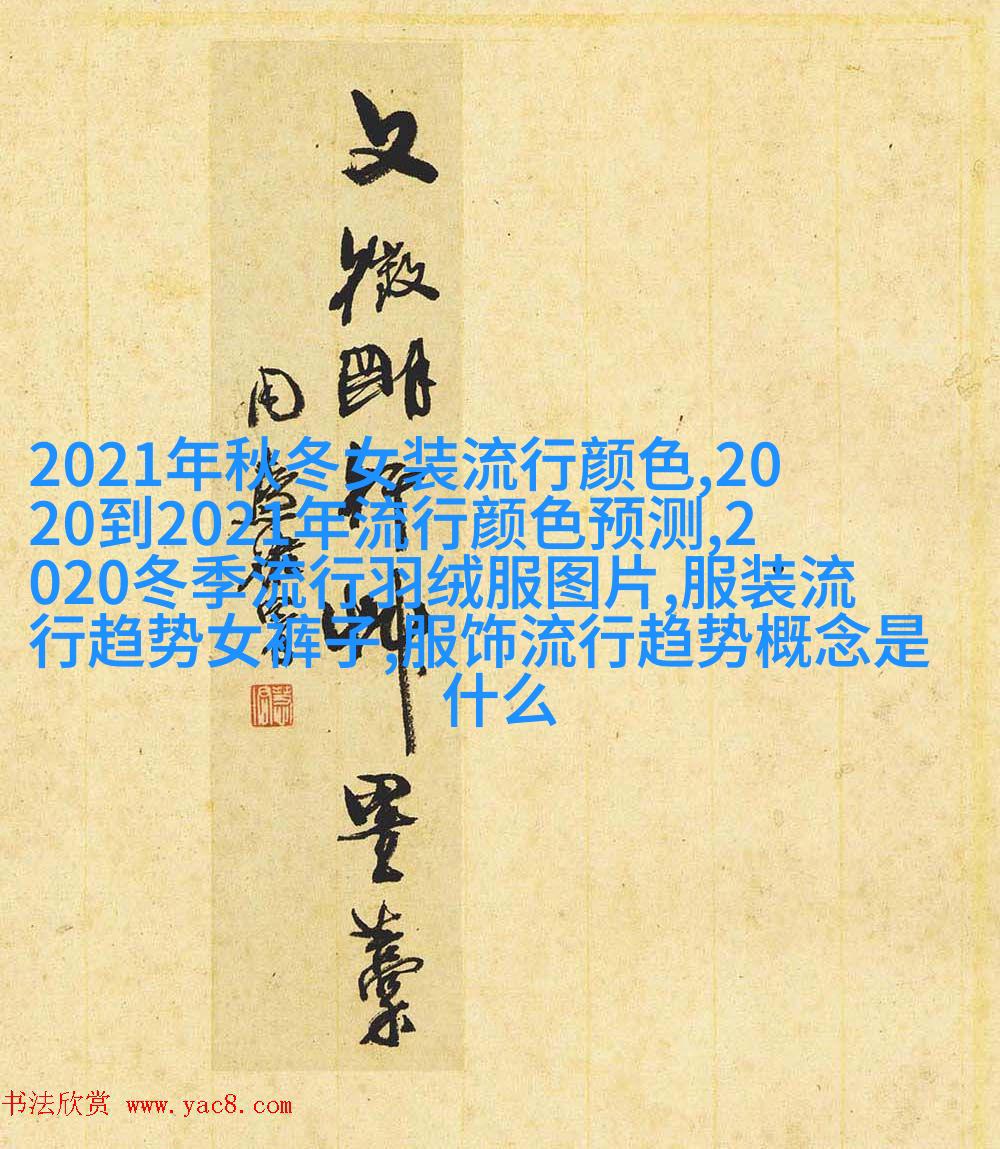 文徵明行艸墨藁
2021年秋冬女装流行颜色,20
20到2021年流行颜色预测,2
020冬季流行羽绒服图片,服装流
行趋势女裤子,服饰流行趋势概念是
什么
书法欣赏 www.yac8.com